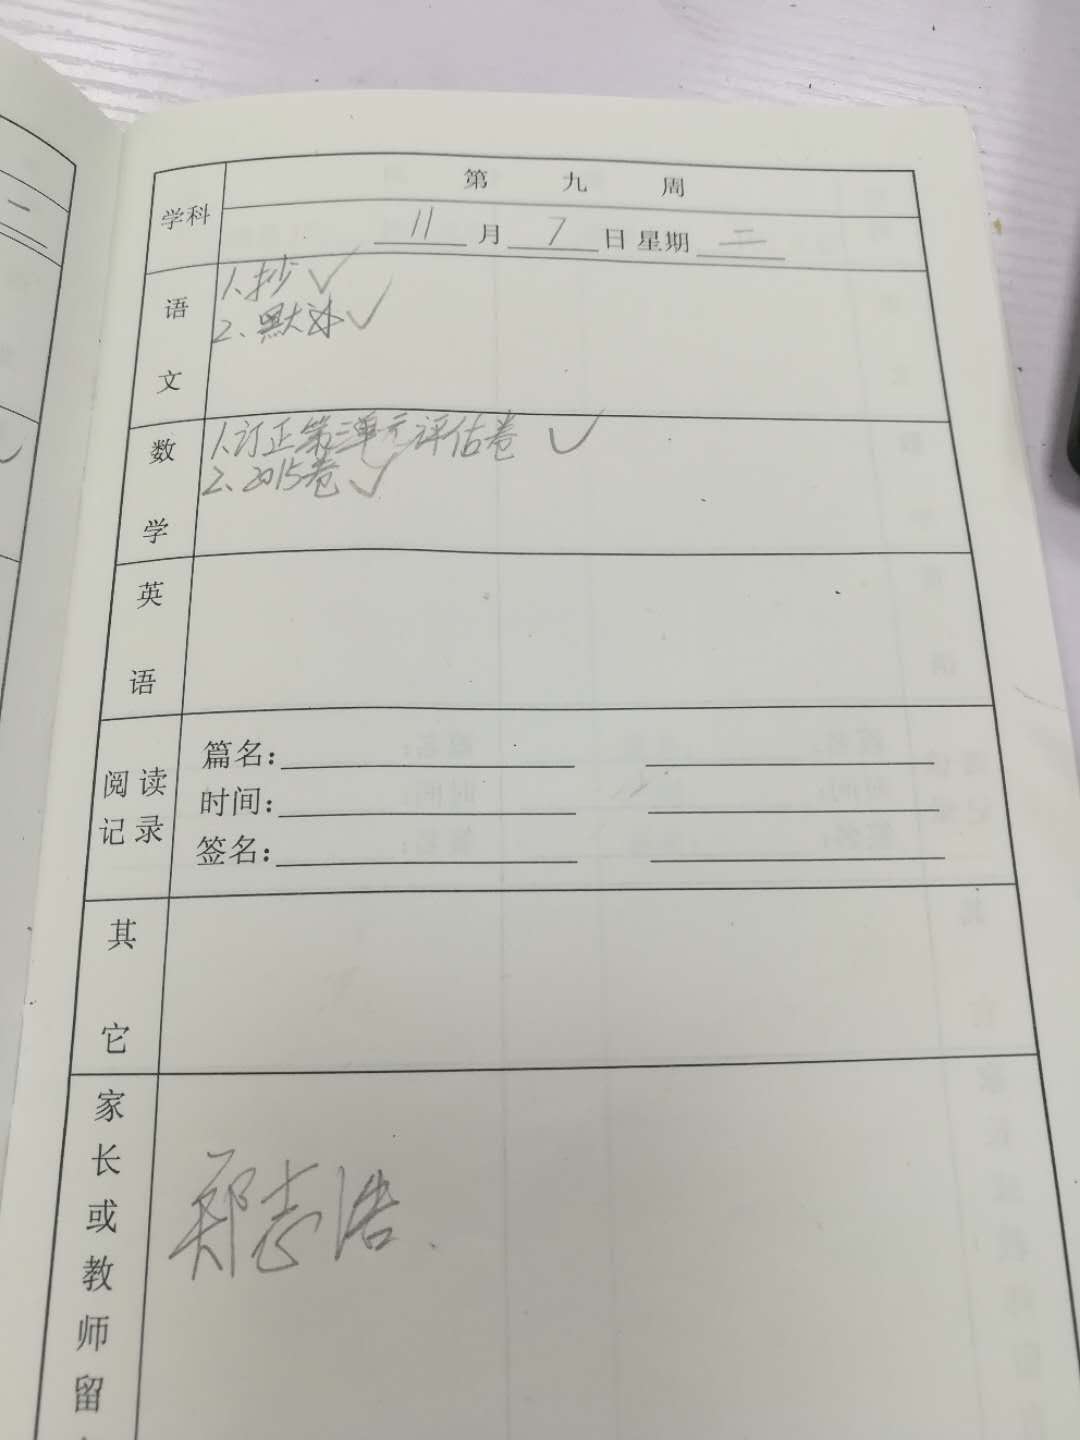 一
第 九 周
学科
11 月 7 日 星期 二
语文
1、抄 ✓
2、默 ✓
数学
1、订正第三单元评估卷 ✓
2、2015卷 ✓
英语
阅读记录
篇名：
时间：
签名：
其它
家长或教师留
郑志浩